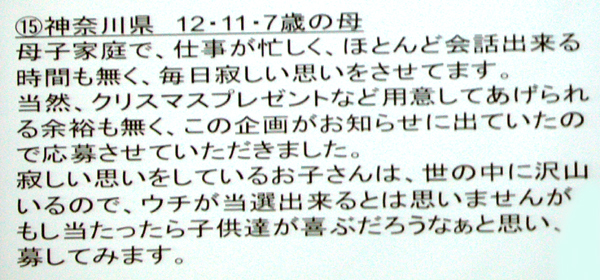 ⑮神奈川県　12・11・7歳の母
母子家庭で、仕事が忙しく、ほとんど会話出来る
時間も無く、毎日寂しい思いをさせてます。
当然、クリスマスプレゼントなど用意してあげられ
る余裕も無く、この企画がお知らせに出ていたの
で応募させていただきました。
寂しい思いをしているお子さんは、世の中に沢山
いるので、ウチが当選出来るとは思いませんが
もし当たったら子供達が喜ぶだろうなぁと思い、
募してみます。